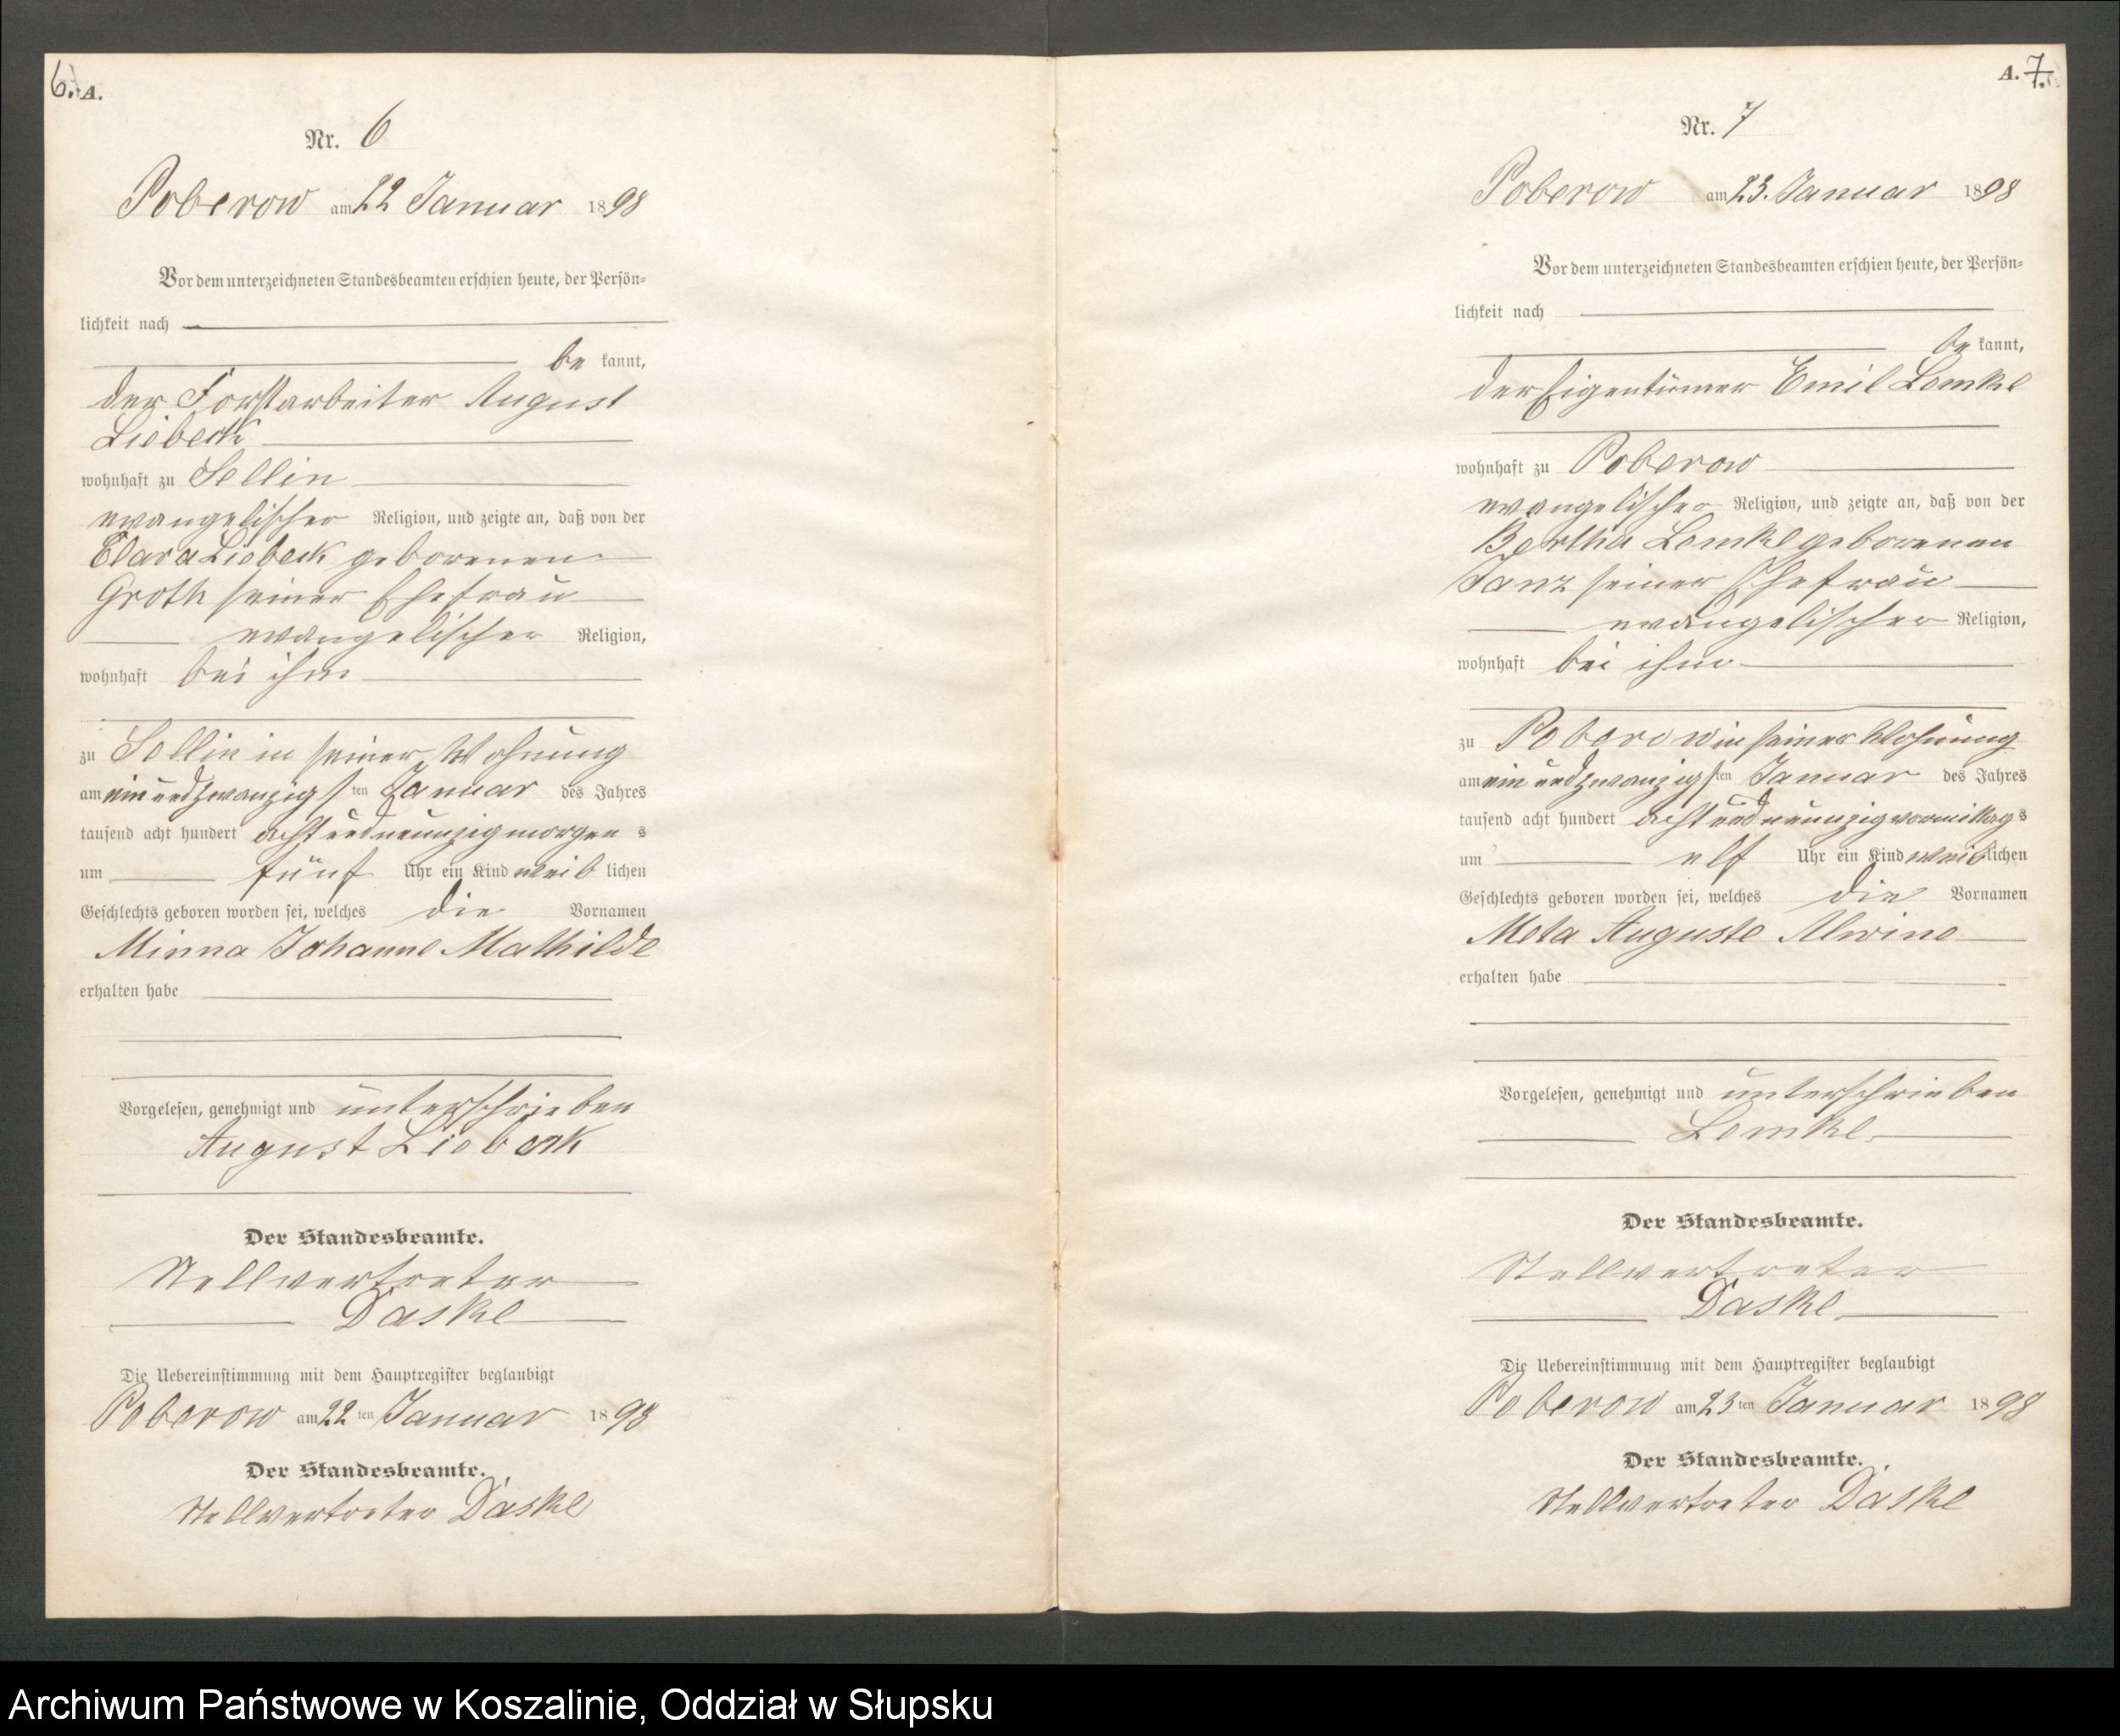 6. A.
Nr. 6
Poberow am 22 Januar 1898
Vor dem unterzeichneten Standesbeamten erschien heute, der Persön-
lichkeit nach
be kannt,
der Forstarbeiter August
Liebeck
wohnhaft zu Sellin
evangelischer Religion, und zeigte an, daß von der
Clara Liebeck geborenen
Groth seiner Ehefrau
evangelischer Religion,
wohnhaft bei ihm
zu Sellin in seiner Wohnung
am ein und zwanzigsten Januar des Jahres
tausend acht hundert acht und neunzig morgens
um fünf Uhr ein Kind weiblichen
Geschlechts geboren worden sei, welches die Vornamen
Minna Johanne Mathilde
erhalten habe
Vorgelesen, genehmigt und unterschrieben
August Liebeck
Der Standesbeamte.
Stellvertreter
Daske
Die Uebereinstimmung mit dem Hauptregister beglaubigt
Poberow am 22ten Januar 1898
Der Standesbeamte.
Stellvertreter Daske
A. 7.
Nr. 7
Poberow am 23. Januar 1898
Vor dem unterzeichneten Standesbeamten erschien heute, der Persön-
lichkeit nach
be kannt,
der Eigentümer Emil Lemke
wohnhaft zu Poberow
evangelischer Religion, und zeigte an, daß von der
Bertha Lemke geborenen
Janz seiner Ehefrau
evangelischer Religion,
wohnhaft bei ihm
zu Poberow in seiner Wohnung
am ein und zwanzigsten Januar des Jahres
tausend acht hundert acht und neunzig vormittags
um elf Uhr ein Kind weiblichen
Geschlechts geboren worden sei, welches die Vornamen
Meta Auguste Alwine
erhalten habe
Vorgelesen, genehmigt und unterschrieben
Lemke
Der Standesbeamte.
Stellvertreter
Daske
Die Uebereinstimmung mit dem Hauptregister beglaubigt
Poberow am 23ten Januar 1898
Der Standesbeamte.
Stellvertreter Daske
Archiwum Państwowe w Koszalinie, Oddział w Słupsku